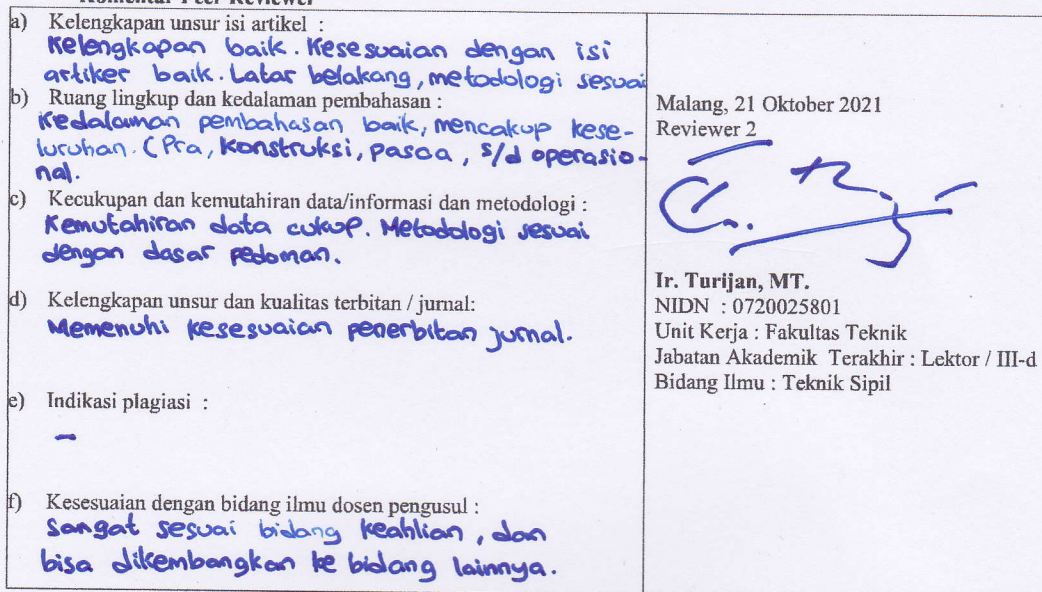 Komentar Peer Reviewer
a) Kelengkapan unsur isi artikel :
Kelengkapan baik. Kesesuaian dengan isi
artiker baik. Latar belakang, metodologi sesuai
b) Ruang lingkup dan kedalaman pembahasan :
Kedalaman pembahasan baik, mencakup kese-
luruhan. (Pra, Konstruksi, pasca, s/d operasio-
nal.
c) Kecukupan dan kemutahiran data/informasi dan metodologi :
Kemutahiran data cukup. Metodologi sesuai
dengan dasar pedoman.
d) Kelengkapan unsur dan kualitas terbitan / jurnal:
Memenuhi kesesuaian penerbitan jurnal.
e) Indikasi plagiasi :
–
f) Kesesuaian dengan bidang ilmu dosen pengusul :
Sangat sesuai bidang keahlian, dan
bisa dikembangkan ke bidang lainnya.
Malang, 21 Oktober 2021
Reviewer 2
Ir. Turijan, MT.
NIDN : 0720025801
Unit Kerja : Fakultas Teknik
Jabatan Akademik Terakhir : Lektor / III-d
Bidang Ilmu : Teknik Sipil